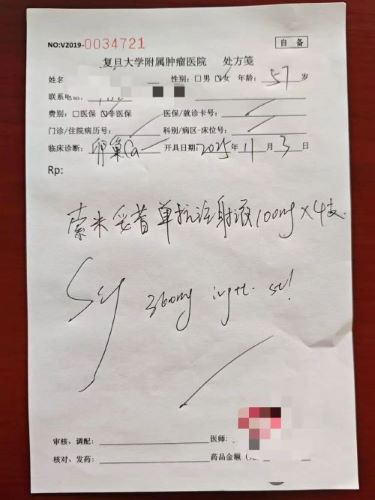 NO:V2019-0034721
自 备
复旦大学附属肿瘤医院 处方笺
姓名 性别: □男 ☑女 年龄: 57 岁
联系电话:
费别: □医保 ☑非医保 医保/就诊卡号:
门诊/住院病历号: 科别/病区-床位号:
临床诊断: 卵巢Ca 开具日期 2025 年 11 月 3 日
Rp:
索米妥昔单抗注射液100mg×4支
Sig 360mg ivgtt. st!
医师:
审核、调配:
核对、发药: 药品金额